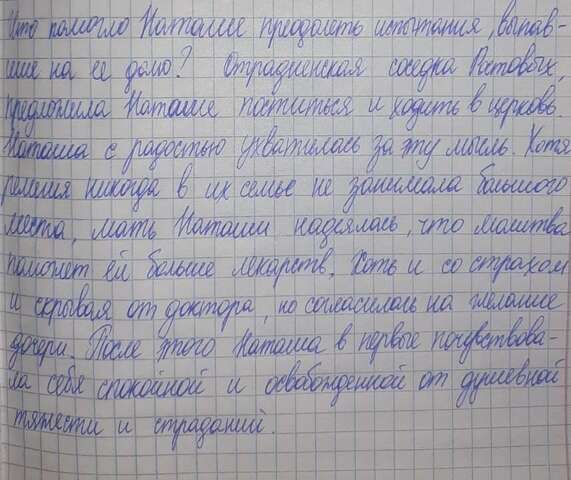 Что помогло Наташе преодолеть испытания, выпав-
шие на ее долю? Отрадненская соседка Ростовых,
предложила Наташе поститься и ходить в церковь.
Наташа с радостью ухватилась за эту мысль. Хотя
религия никогда в их семье не занимала большого
места, мать Наташи надеялась, что молитва
поможет ей больше лекарств. Хоть и со страхом
и скрывая от доктора, но согласилась на желание
дочери. После этого Наташа в первые почувствова-
ла себя спокойной и освобожденной от душевной
тяжести и страданий.